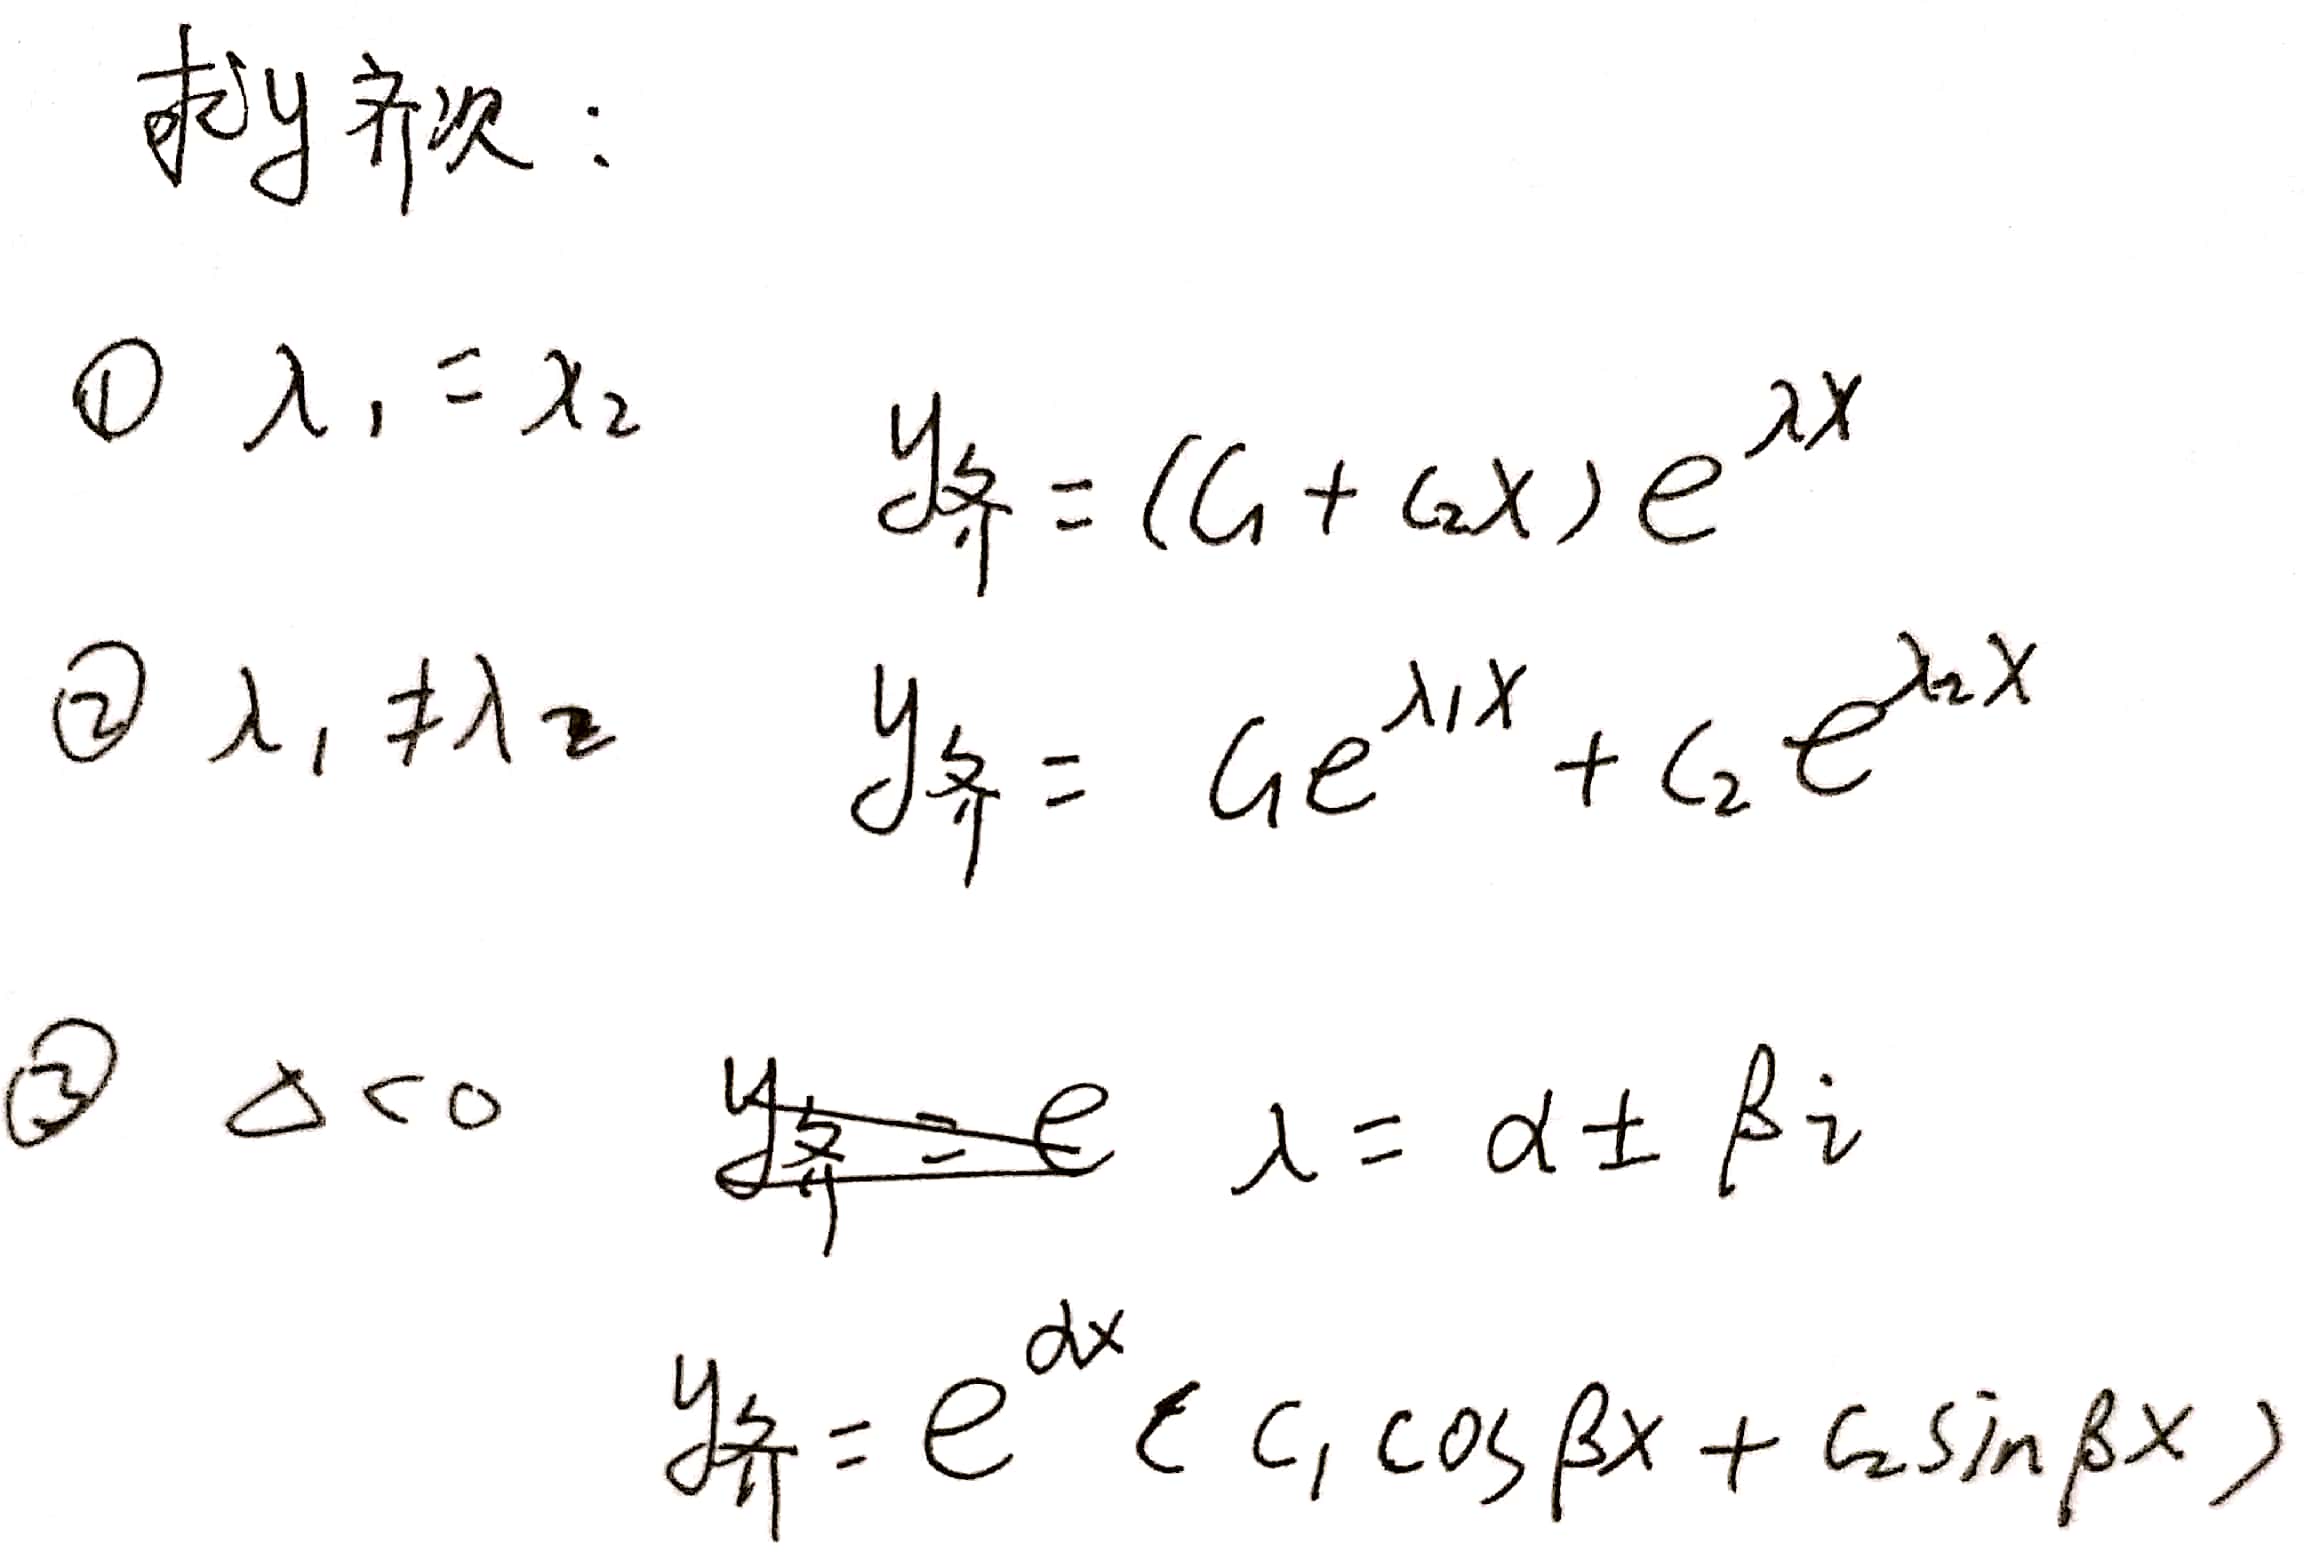 求y齐次：
① λ₁ = λ₂ y齐 = (C₁ + C₂x) e^{λx}
② λ₁ ≠ λ₂ y齐 = C₁e^{λ₁x} + C₂e^{λ₂x}
③ Δ<0 y齐 = e λ = α ± βi
y齐 = e^{αx} ( C₁ cosβx + C₂ sinβx )